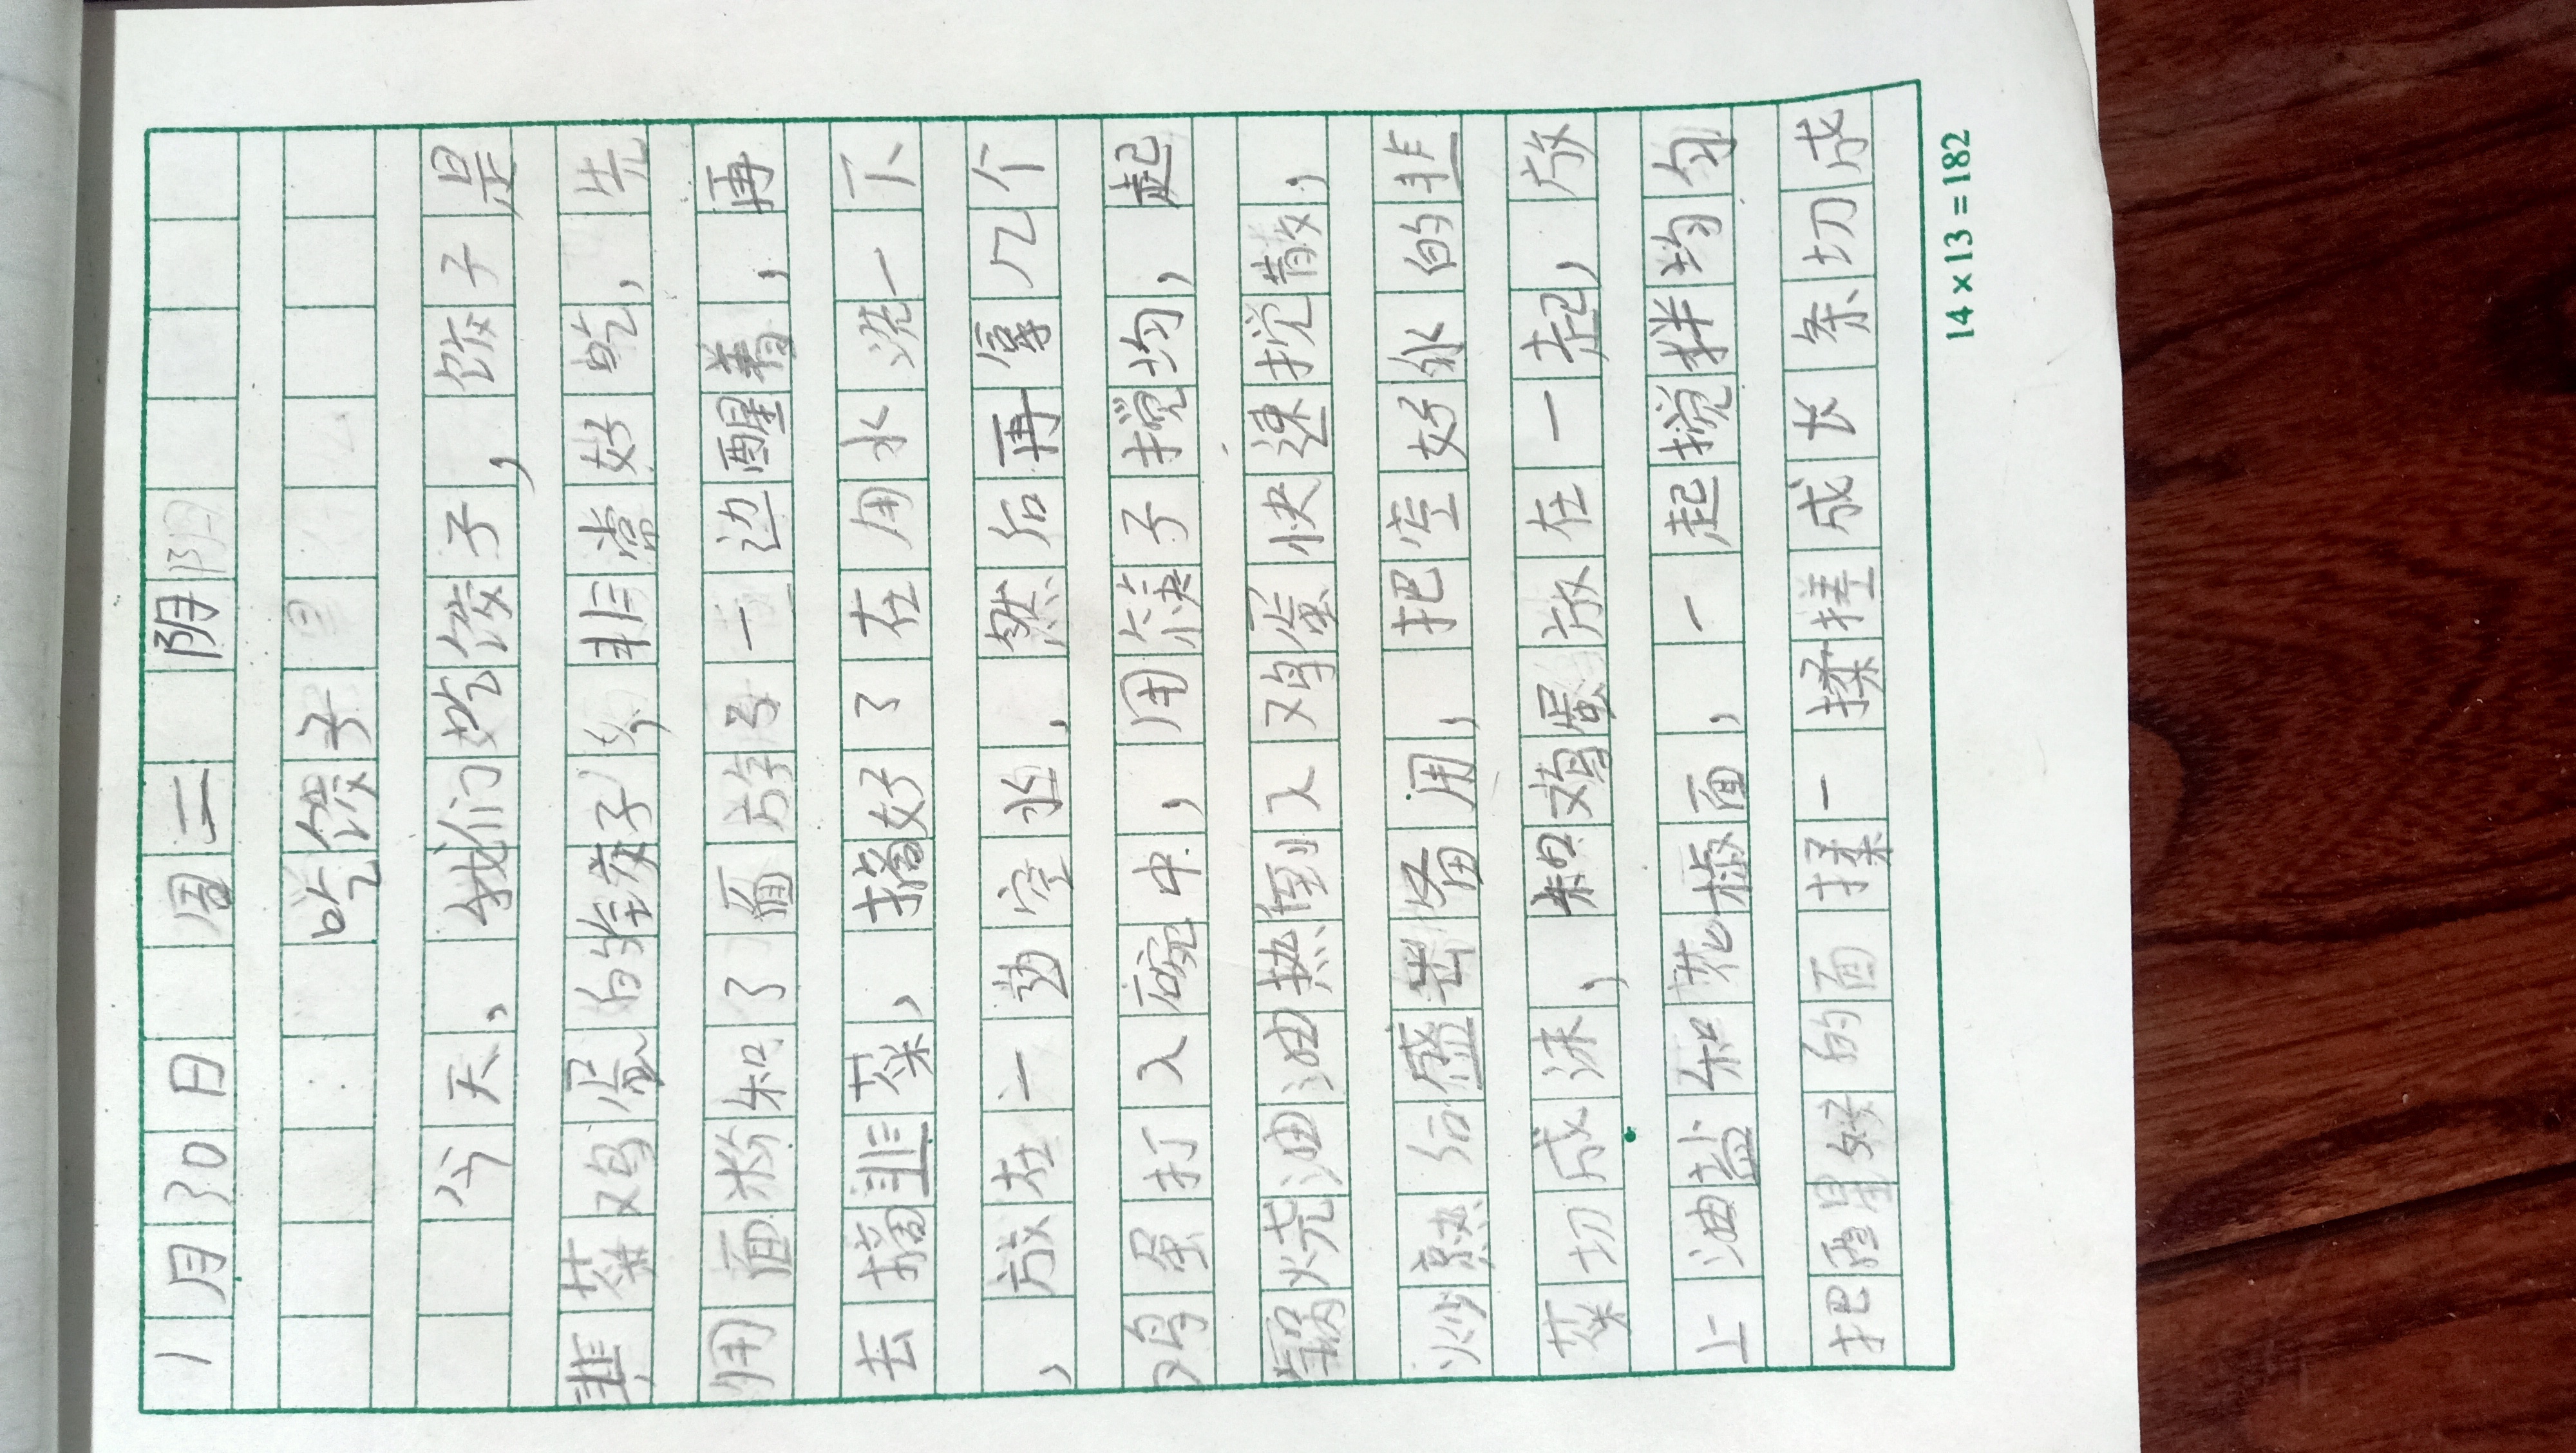 1月30日 周二 阴
吃饺子
今天，我们吃饺子，饺子是
韭菜鸡蛋的饺子，非常好吃，先
用面粉和了面 一边醒着，再
去摘韭菜，摘好了在用水洗一下
，放在一边空水，然后再拿几个
鸡蛋打入碗中，用筷子搅均，起
锅烧油油热倒入鸡蛋快速搅散，
炒熟后盛出备用，把空好水的韭
菜切成沫，和鸡蛋放在一起，放
上油盐和花椒面，一起搅拌均匀
把醒好的面揉一揉搓成长条切成
14×13=182